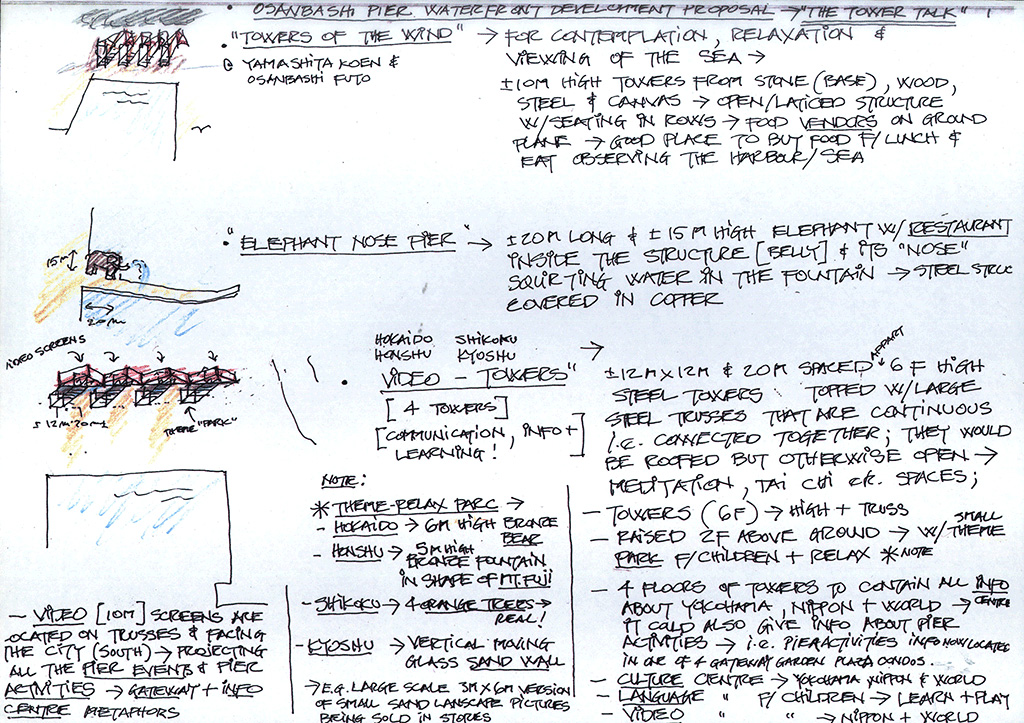 • OSANBASHI PIER WATERFRONT DEVELOPMENT PROPOSAL → "THE TOWER TALK" !
• "TOWERS OF THE WIND" → FOR CONTEMPLATION, RELAXATION &
@ YAMASHITA KOEN &
OSANBASHI FUTO
VIEWING OF THE SEA →
±10M HIGH TOWERS FROM STONE (BASE), WOOD,
STEEL & CANVAS → OPEN/LATICED STRUCTURE
W/SEATING IN ROWS → FOOD VENDORS ON GROUND
PLANE → GOOD PLACE TO BUY FOOD F/LUNCH &
EAT OBSERVING THE HARBOUR/SEA
• "ELEPHANT NOSE PIER" → ±20M LONG & ±15M HIGH ELEPHANT W/RESTAURANT
INSIDE THE STRUCTURE [BELLY] & ITS "NOSE"
SQUIRTING WATER IN THE FOUNTAIN → STEEL STRUC
COVERED IN COPPER
15M
20M
VIDEO SCREENS
± 12M 20M
THEME "PARK"
HOKAIDO SHIKOKU
HONSHU KYOSHU
• VIDEO - TOWERS" →
[4 TOWERS]
[COMMUNICATION, INFO +
LEARNING!]
±12M X 12M & 20M SPACED APPART 6 F HIGH
STEEL TOWERS TOPPED W/LARGE
STEEL TRUSSES THAT ARE CONTINUOUS
i.e. CONNECTED TOGETHER; THEY WOULD
BE ROOFED BUT OTHERWISE OPEN →
MEDITATION, TAI CHI etc. SPACES;
- TOWERS (6F) → HIGH + TRUSS
- RAISED 2F ABOVE GROUND → W/ SMALL THEME
PARK F/CHILDREN + RELAX * NOTE
- 4 FLOORS OF TOWERS TO CONTAIN ALL INFO
ABOUT YOKOHAMA, NIPPON + WORLD → CENTRE
IT COLD ALSO GIVE INFO ABOUT PIER
ACTIVITIES → i.e. PIER ACTIVITIES INFO NOW LOCATED
IN ONE OF 4 GATEWAY GARDEN PLAZA
- CULTURE CENTRE → YOKOHAMA NIPPON & WORLD
- LANGUAGE " F/CHILDREN → LEARN + PLAY
- VIDEO " " → NIPPON + WORLD
NOTE:
* THEME-RELAX PARC →
- HOKAIDO → 6M HIGH BRONZE
BEAR
- HONSHU → 5M HIGH
BRONZE FOUNTAIN
IN SHAPE OF MT. FUJI!
- SHIKOKU → 4 ORANGE TREES →
REAL!
- KYOSHU → VERTICAL MOVING
GLASS SAND WALL
→ E.G. LARGE SCALE 3M X 6M VERSION
OF SMALL SAND LANSCAPE PICTURES
BEING SOLD IN STORES
- VIDEO [10M] SCREENS ARE
LOCATED ON TRUSSES & FACING
THE CITY (SOUTH) → PROJECTING
ALL THE PIER EVENTS & PIER
ACTIVITIES → GATEWAY + INFO
CENTRE METAPHORS